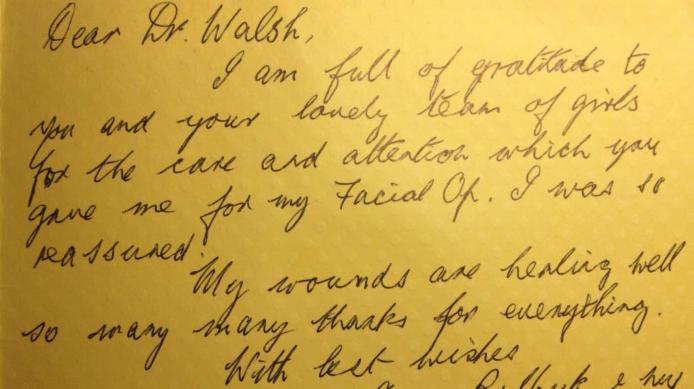 Dear Dr. Walsh,
I am full of gratitude to
you and your lovely team of girls
for the care and attention which you
gave me for my Facial Op. I was so
reassured.
My wounds are healing well
so many many thanks for everything.
With best wishes